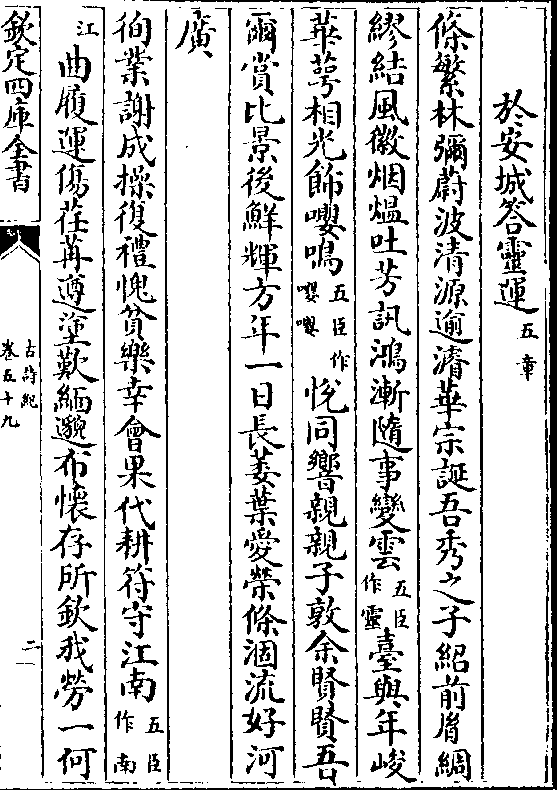 於安城答靈運五章
條繁林彌蔚波清源逾濬華宗誕吾秀之子紹前𦙍綢
繆結風徽烟熅吐芳訊鴻漸隨事變雲五臣作靈臺與年峻
華萼相光飾嚶鳴五臣作嚶嚶悅同響親親子敦余賢賢吾
爾賞比景後鮮輝方年一日長萎葉愛榮條涸流好河
廣
徇業謝成操復禮愧貧樂幸會果代耕符守江南五臣作南
江曲履運傷荏苒遵塗歎緬邈布懷存所欽我勞一何
欽定四庫全書
古詩紀
卷五十九
二